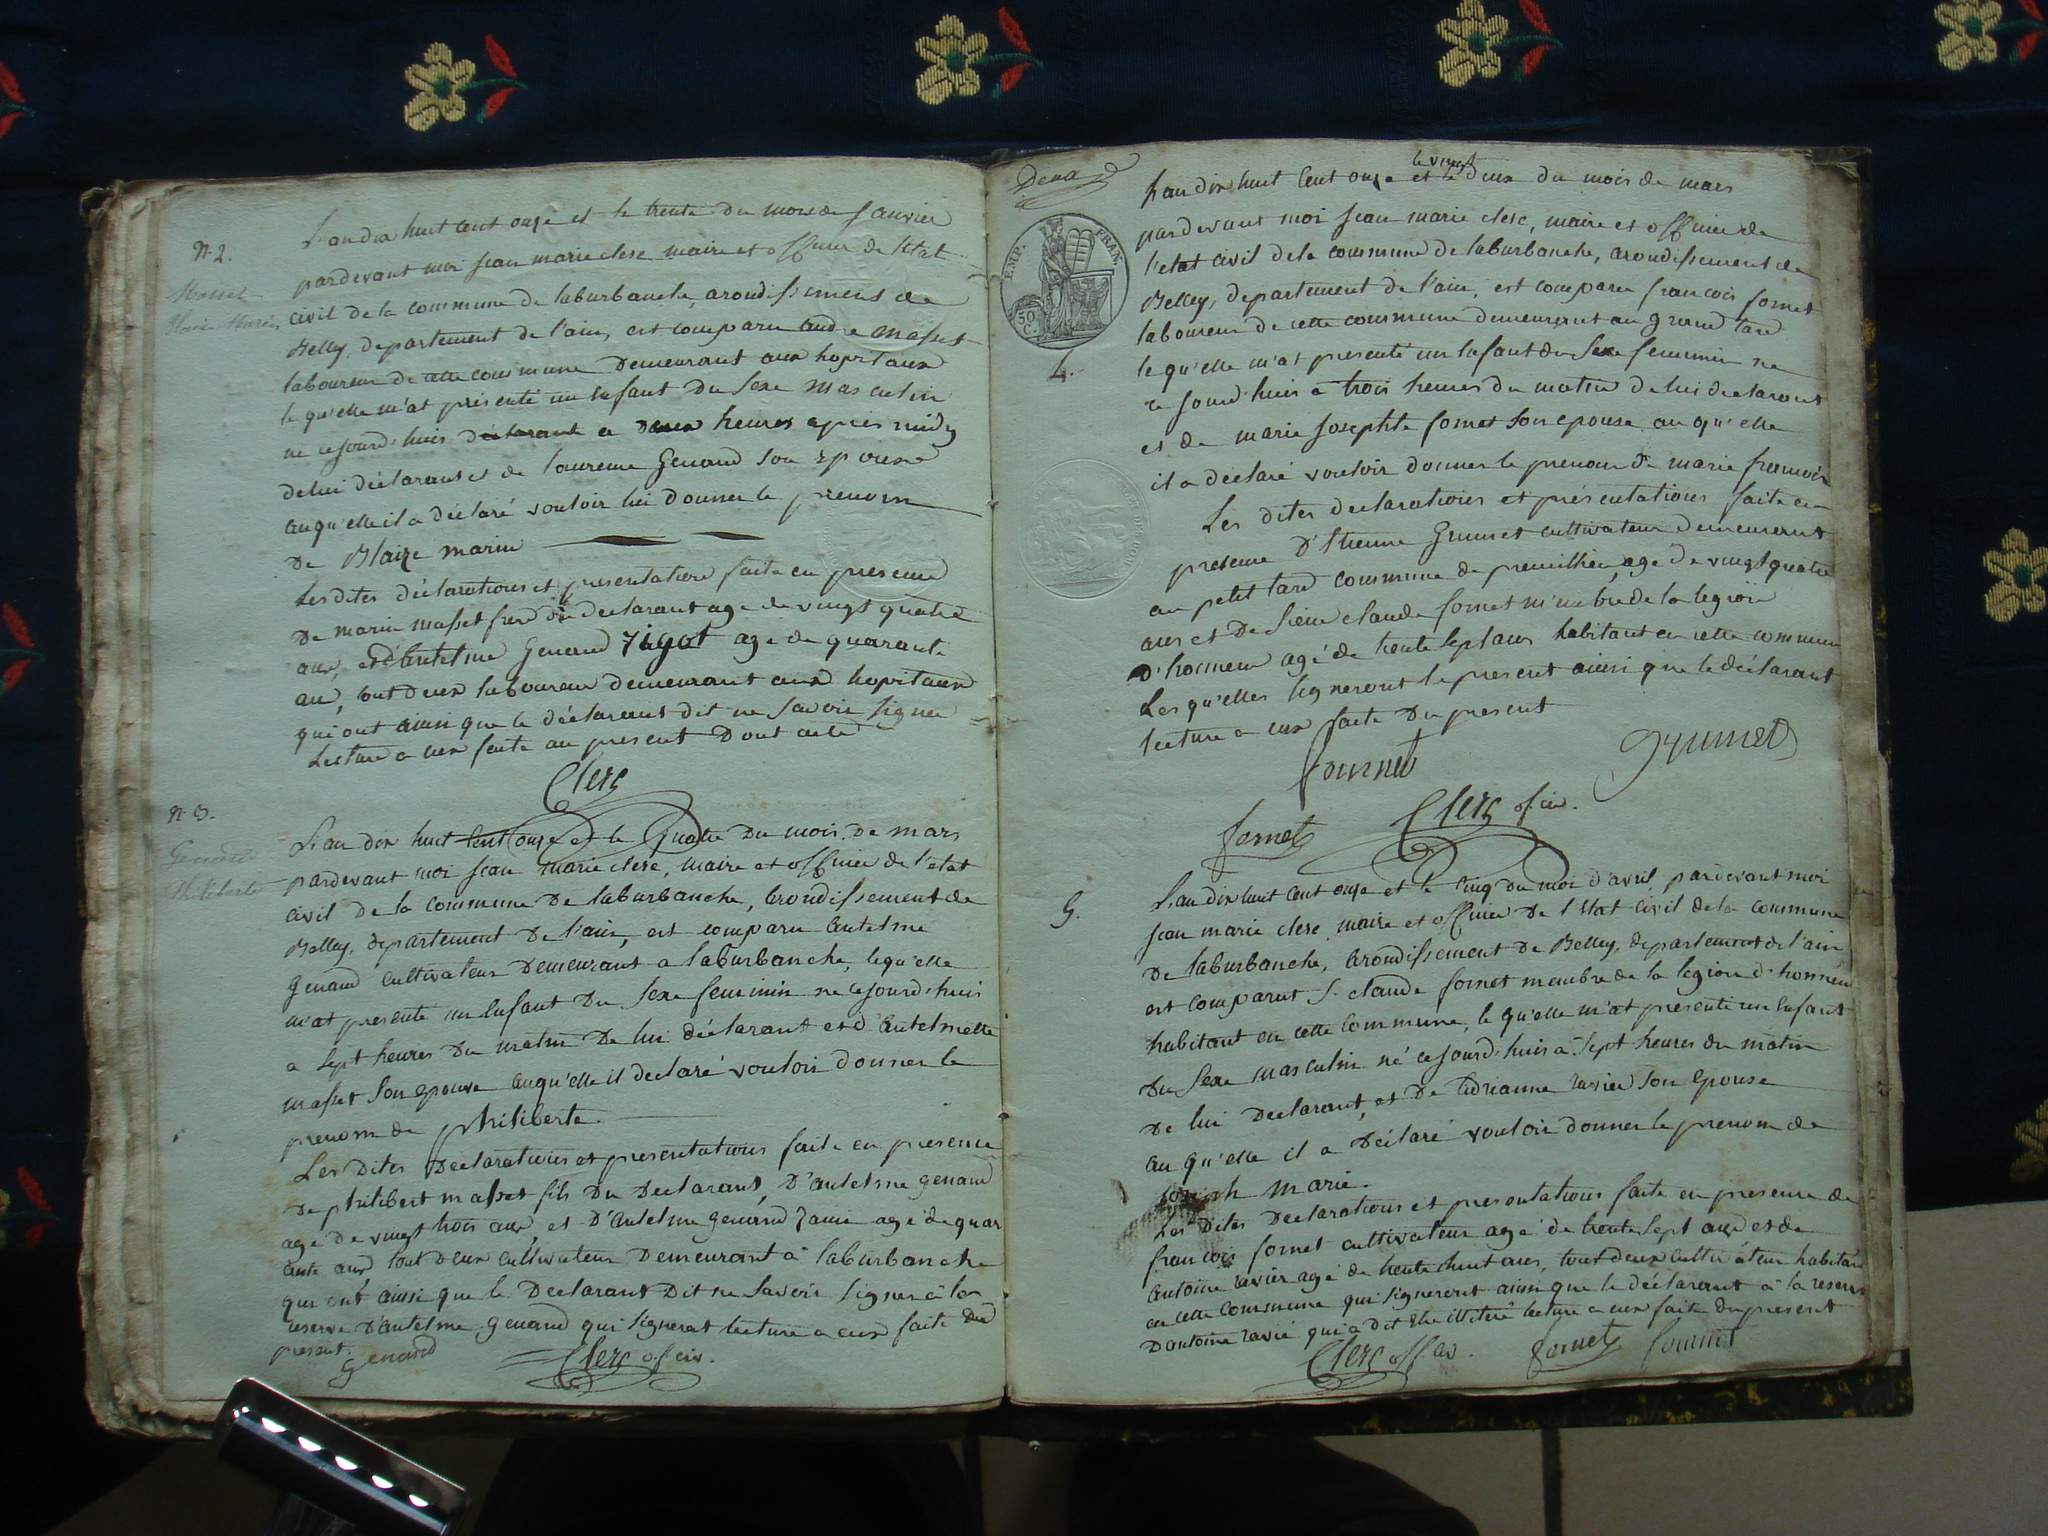 N. 2.
Masset
Blaise Marin
L'an dix huit cent onze et le trente du mois de Janvier
pardevant moi jean marie clerc maire et officier de l'état
civil de la commune de laburbanche, arondissement de
Belley, departement de l'ain, est comparu andre masset
laboureur de cette commune demeurant aux hopitaux
le qu'elle m'at présenté un enfant du sexe masculin
né cejourd'huis déclarant a deux heures après midy
de lui déclarant et de laurence Genand son épouse
auqu'elle il a déclaré vouloir lui donner le prenom
de Blaize marin
Les dites déclarations et présentations faite en presence
de marin masset frere du declarant age de vingt quatre
ans, et d'Antelme Genand Zigot age de quarante
an, tout deux laboureur demeurant aux hopitaux
qui ont ainsi que le déclarant dit ne savoir signer
Lecture a eux faite au present dont acte
Clerc
N. 3.
Genand
Philiberte
L'an dix huit cent onze et le quatre du mois de mars
pardevant moi jean marie clerc, maire et officier de l'etat
civil de la commune de laburbanche, arondissement de
Belley, departement de l'ain, est comparu antelme
genand cultivateur demeurant a laburbanche, lequ'elle
m'at presenté un enfant du sexe feminin né cejourd'huis
a sept heures du matin de lui déclarant et d'antelmette
masset son epouse auqu'elle il declaré vouloir donner le
prenom de philiberte.
Les dites declarations et presentations faite en presence
de philibert masset fils du declarant, d'antelme genand
agé de vingt trois ans, et d'antelme genand agé de quar
ante ans tout deux cultivateur demeurant à laburbanche
qui ont ainsi que le declarant dit ne savoir signer à la
reserve d'antelme genand qui signerat lecture a eux faite du
present.
Genand
Clerc of. civ.
EMP. FRAN.
50 C.
4.
le vingt
L'an dix huit cent onze et le deux du mois de mars
pardevant moi jean marie clerc, maire et officier de
l'etat civil dela commune de laburbanche, arondissement de
Belley, departement de l'ain, est comparu francois fornet
laboureur de cette commune demeurant au grand tard
le qu'elle m'at presenté un enfant du sexe feminin né
ce jourd'huis a trois heures du matin de lui declarant
et de marie josephte fornet son epouse au qu'elle
il a déclaré vouloir donner le prenom de marie francois
Les dites declarations et présentations faite en
presence d'Etienne Grumet cultivateur demeurant
au petit tard commune de premillieu, age de vingt quatre
ans et de sieur claude fornet membre de la legion
d'honneur agé de trente sept ans habitant en cette commune
Lesqu'elles signeront le present ainsi que le déclarant
lecture a eux faite du present
fournet
Grumet
fornet
Clerc of. civ.
5.
L'an dix huit cent onze et le cinq du moi d'avril pardevant moi
jean marie clerc, maire et officier de l'etat civil de la commune
de laburbanche, arondissement de Belley, departement de l'ain
est comparut S. claude fornet membre de la legion d'honneur
habitant en cette commune, le qu'elle m'at presenté un enfant
du sexe masculin né cejourd'huis à sept heures du matin
de lui declarant, et de adrianne ravier son epouse
au qu'elle il a déclaré vouloir donner le prenom de
joseph marie.
Les dites declarations et presentations faite en presence de
francois fornet cultivateur agé de trente sept ans et de
antoine ravier agé de trente huit ans, tout deux cultivateur habitant
en cette commune qui signeront ainsi que le déclarant à la reserve
d'antoine ravié qui a dit etre illiteré lecture a eux faite du present
Clerc off. civ.
fornet
fournet